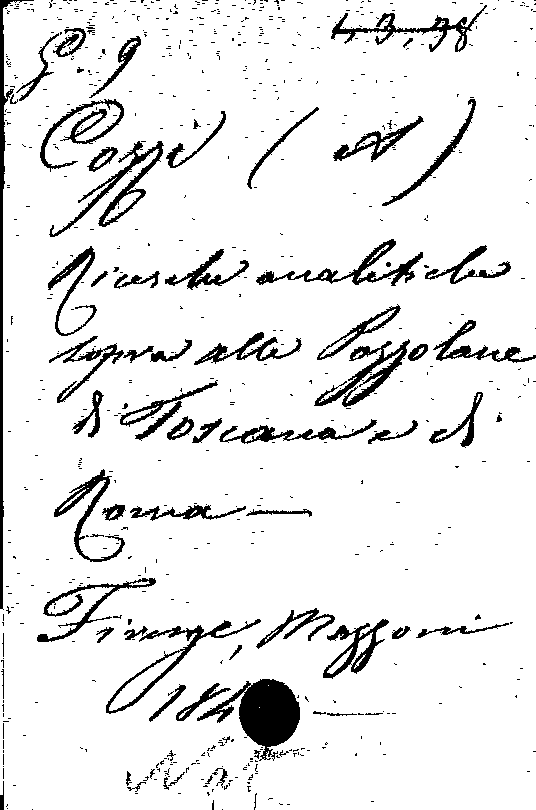 L, 3, 38
G. 9
Cozzi (A)
Ricerche analitiche
sopra alle Pozzolane
di Toscana e di
Roma —
Firenze, Mazzoni
184
Nat